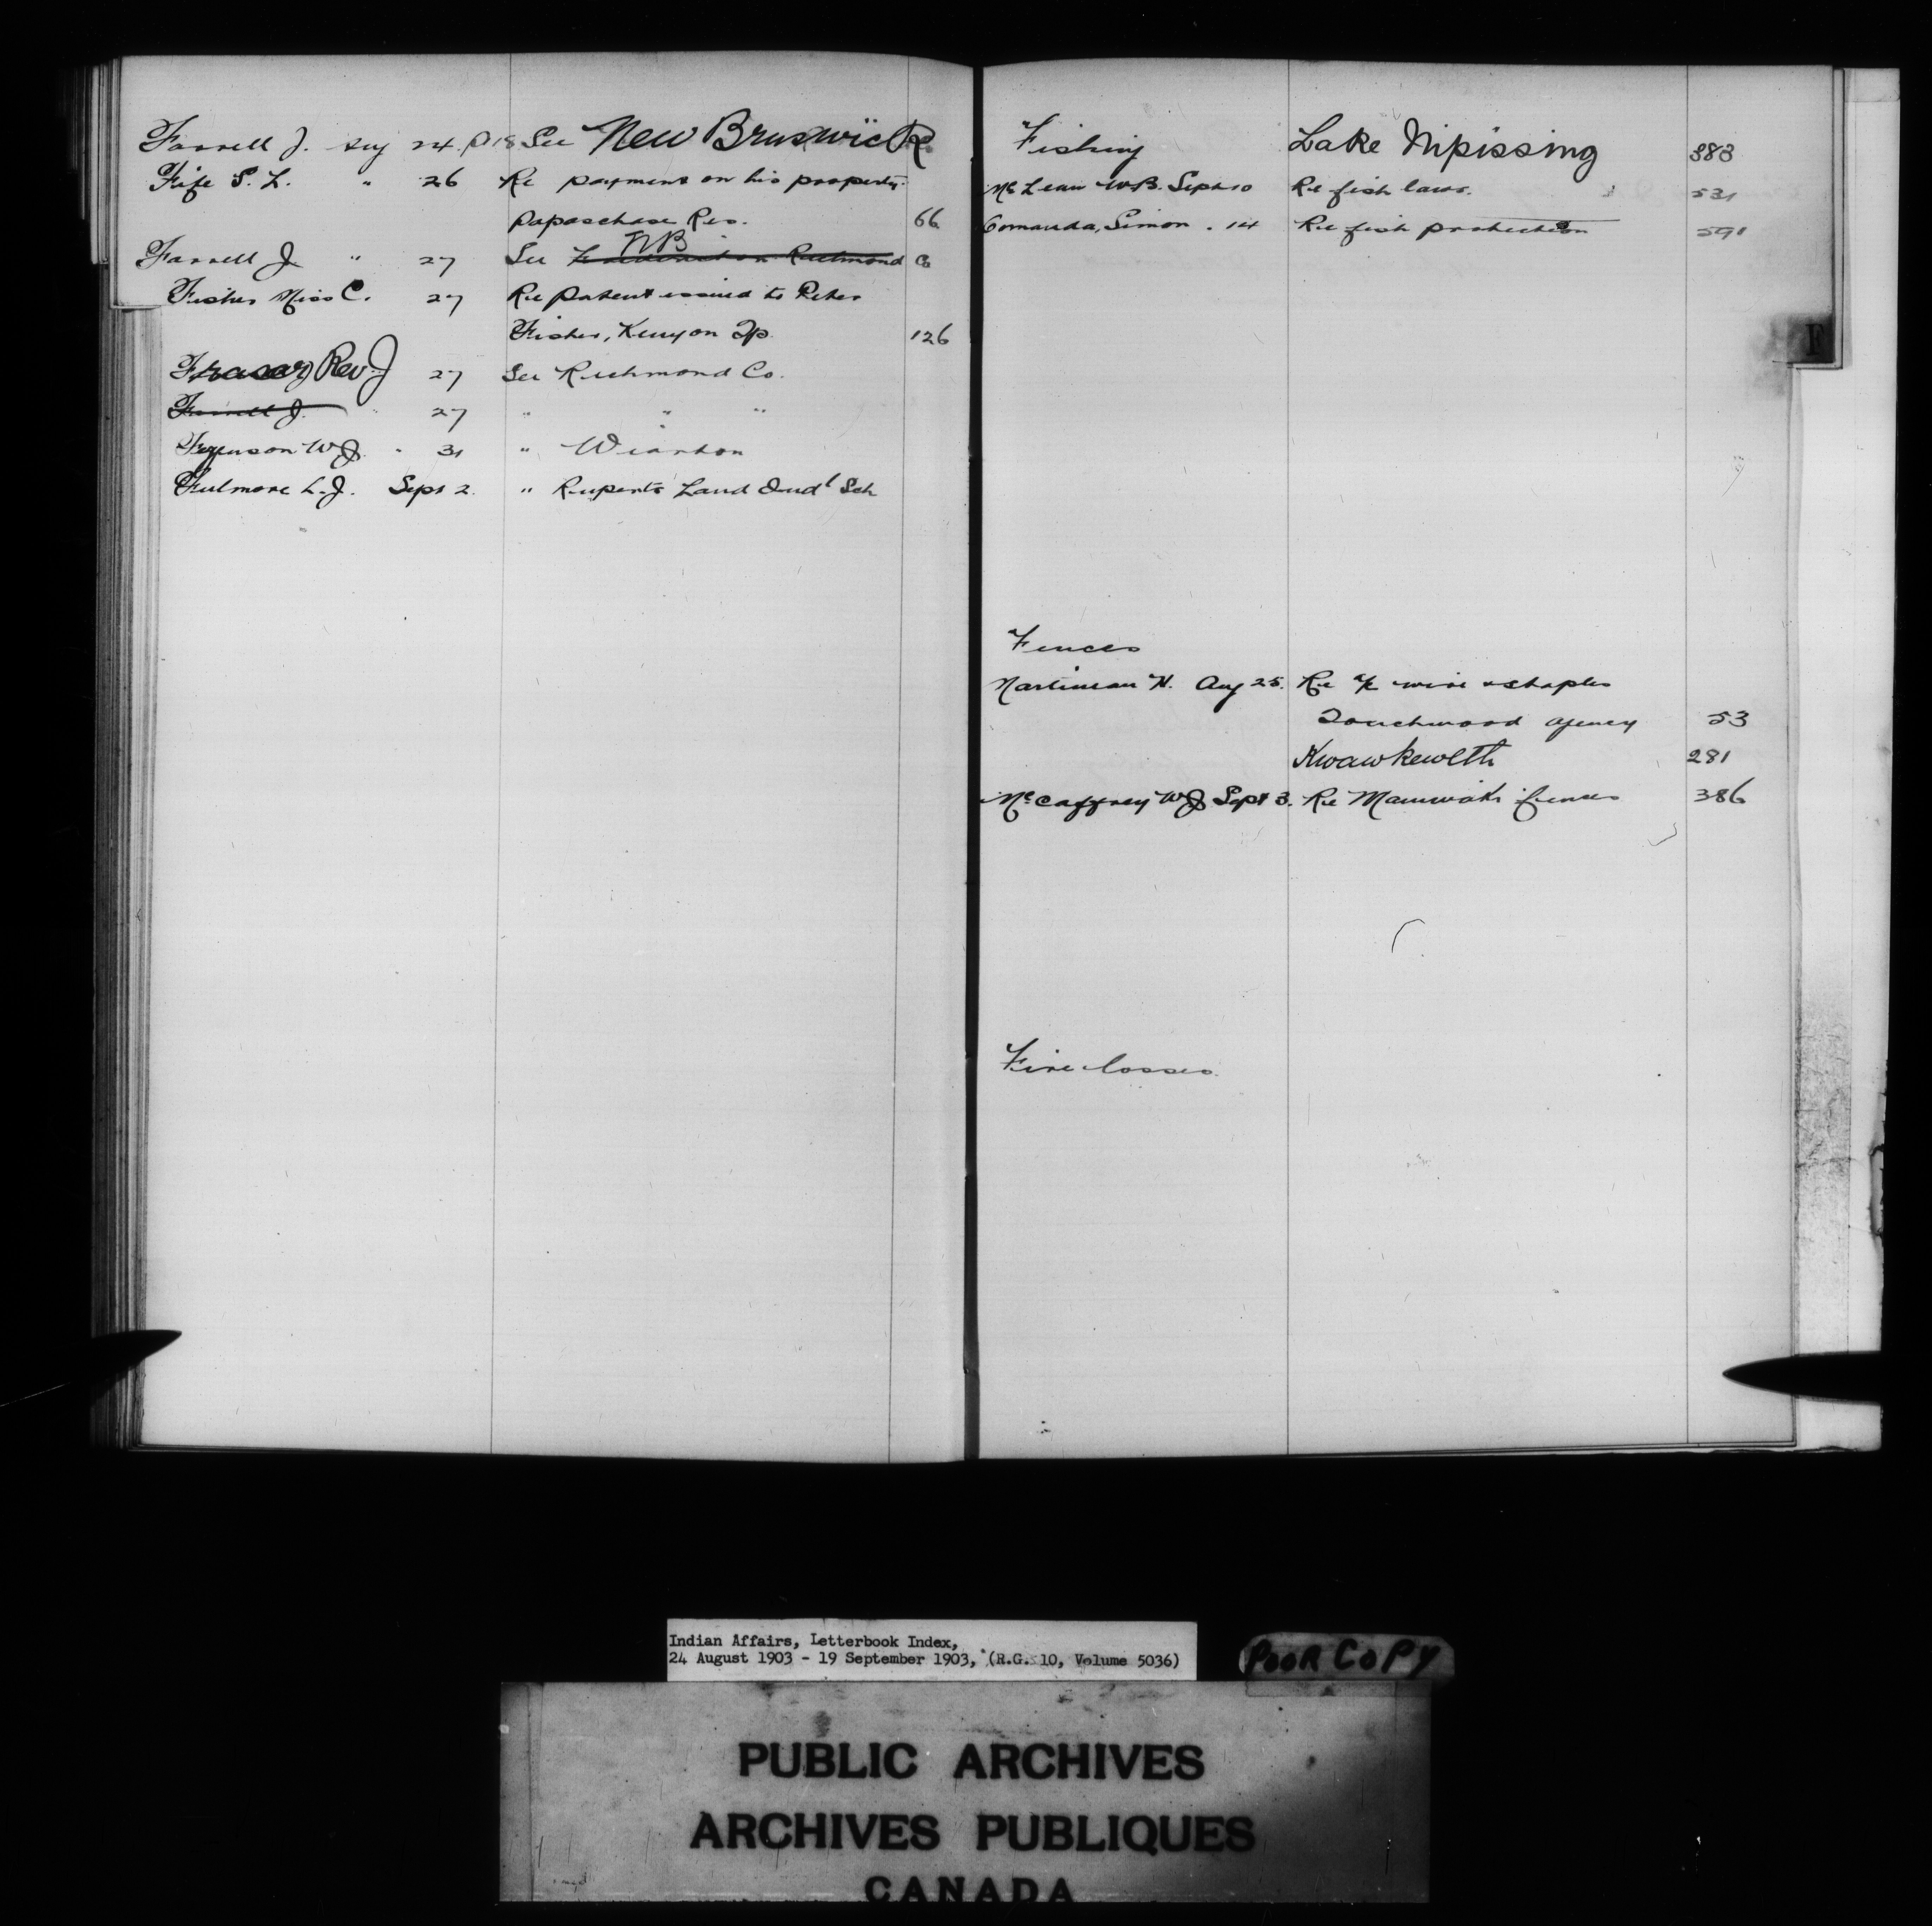 Farrell J. Aug 24 P18 See New Brunswick
Fife S. L. " 26 Re payment on his property
Papaschase Res. 66
NB
Farrell J. " 27 See Richmond Co
Fisher Miss C. 27 Re patent issued to Peter
Fisher, Kenyon Tp. 126
Fraser, Rev. J 27 See Richmond Co.
Farrell J. " 27 " " "
Ferguson W.J. " 31 " Wiarton
Fulmore L.J. Sept 2. " Ruperts Land Indl Sch
Fishing Lake Nipissing 383
McLean W.B. Sept 10 Re fish laws. 531
Comanda, Simon . 14 Re fish protection 591
F
Fences
Martineau H. Aug 25. Re a/c wire & staples
Touchwood agency 53
Kwawkewlth 281
McCaffrey WJ Sept 3. Re Maniwaki fences 386
Fire losses.
Indian Affairs, Letterbook Index,
24 August 1903 - 19 September 1903, (R.G. 10, Volume 5036)
POOR COPY
PUBLIC ARCHIVES
ARCHIVES PUBLIQUES
CANADA